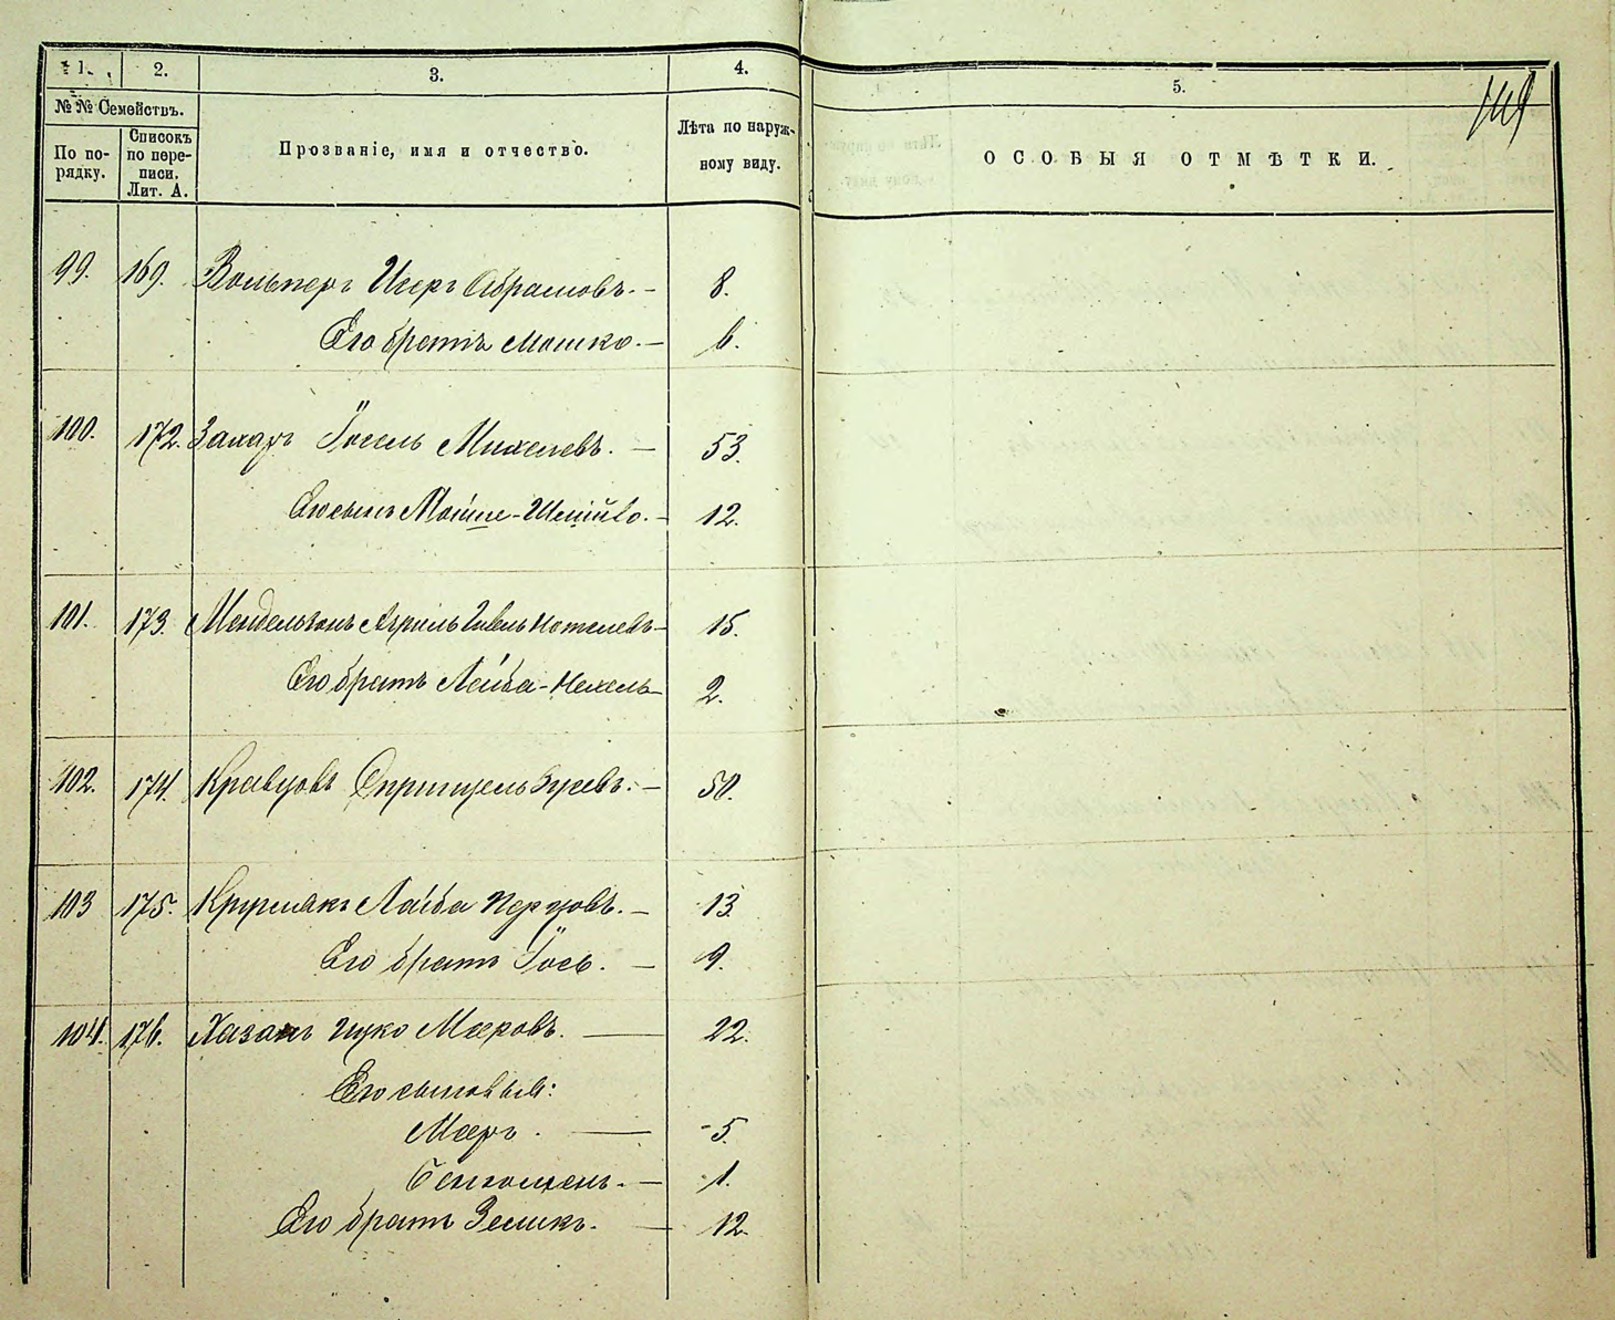 1. 2. 3. 4. 5.
№№ Семействъ.
По по-рядку.
Списокъ по пере-писи. Лит. А.
Прозваніе, имя и отчество.
Лѣта по наруж-ному виду.
ОСОБЫЯ ОТМѢТКИ.
99. 169. Вольперъ Абрамовъ. — 8.
Его братъ Мошко. — 6.
100. 172. Захаръ Іосель Михелевъ. — 53.
Его сынъ Мойше- — 12.
101. 173. Мендельзонъ Азриль — 15.
Его братъ Лейба- — 2.
102. 174. Кравцовъ — 50.
103 175. Лейба Перцовъ. — 13.
Его братъ Іось. — 9.
104. 176. Хазанъ Ицко Мееровъ. — 22.
Его сыновья:
Мееръ. — 5.
Бенгоменъ. — 1.
Его братъ Зеликъ. — 12.